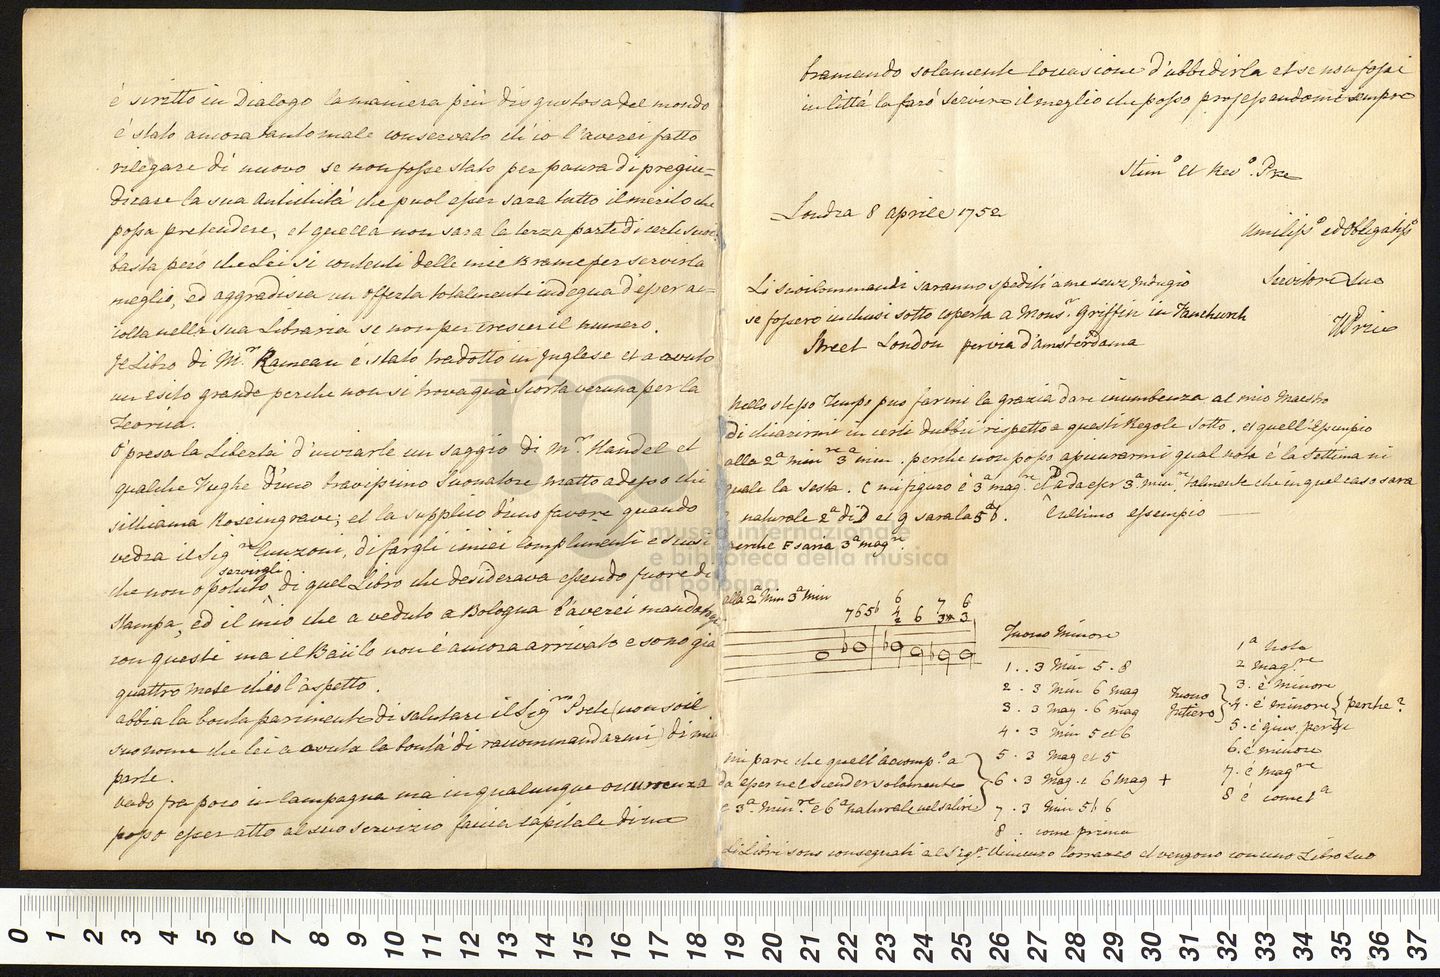 è scritto in Dialogo la maniera più disgustosa del mondo
é stato ancora tanto male conservato ch'io l'averei fatto
rilegare di nuovo se non fosse stato per paura di pregiu=
dicare la sua antichità che puol esser sara tutto il merito che
possa pretendere, et quella non sara la terza parte di certi
basta pero che Lei si contenti delle mie Brame per servirla
meglio, ed aggradisca un offerta totalmente indegna d'esser ac=
colta nella sua Libraria se non per crescer il numero.
Il Libro di Mr. Rameau é stato tradotto in Inglese et a avuto
un esito grande perche non si trova quà scorta veruna per la
Teorica.
O presa la Libertà d'inviarle un saggio di Mr. Handel et
qualche Fughe d'uno bravissimo Suonatore matto adesso che
si chiama Roseingrave; et la supplico d'uno favore quando
vedra il Sigre Cunzoni, di fargli i miei complimenti e scusi
che non o potuto servirgli di quel Libro che desiderava essendo fuore di
stampa, ed il mio che a veduto a Bologna l'averei mandato
con questi ma il Baulo non é ancora arrivato e sono gia
quattro mese ch'io l'aspetto.
abbia la bonta parimente di salutare il Sigro Prete (non so il
suo nome che lei a avuta la bontà di raccommandarmi) di mia
parte.
vado fra poco in campagna ma in qualunque occurrenza
posso esser atto al suo servizio faccia capitale di me
bramando solamente l'occasione d'ubbidirla et se non fossi
in città la farò servire il meglio che posso professandomi sempre
Stimo et Revo. Pre
Londra 8 aprile 1752
Umiliso ed Obbligatiso
Servitore Suo
WPrice
Li suoi Commandi saranno spediti a me senz indugio
se fossero inchiusi sotto coperta a Monsr Griffin in Fanchurch
Street London per via d'Amsterdama
Nello stesso Tempo puo farmi la grazia dare incumbenza al mio Maestro
di chiarirmi in certi dubbii rispetto a questi Regole sotto. et quell'Esempio
alla 2a minre 3a min. perche non posso assicurarmi qual nota è la Settima ni
quale la Sesta. C mi figuro è 3a magre et D a da esser 3a minre talmente che in quel caso sara
naturale 2a di D et g sara la 5a b. l'ultimo essempio
perche F saria 3a magre.
alla 2a Min 3a Min
7 6 5b 6 4 2 6 7 3* 6 3
Tuono Minore
1 . . 3 Min 5 . 8
2 . 3 Min 6 mag
3 . 3 mag . 6 mag
4 . 3 Min 5 et 6
5 . 3 Mag et 5
6 . 3 Mag . e 6 mag +
7 . 3 Min 5b 6
8 . come prima
Tuono
Intiero
1a nota
2 magre
3 . é minore
4 . é minore } perche?
5 . é gius. perche
6 . é minore
7 . é magre
8 é come 1a
mi pare che quell'accompo. a
da esser nel scender solamente
e 3a. Minre e 6a naturale nel salire
Li Libri sono consegnati al Sigr. Vincenzo Corrazzo et vengono con uno Libro suo